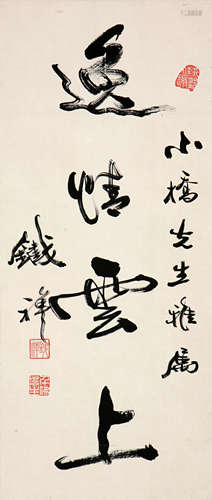 小橋先生雅屬
逸情雲上
鐵禅